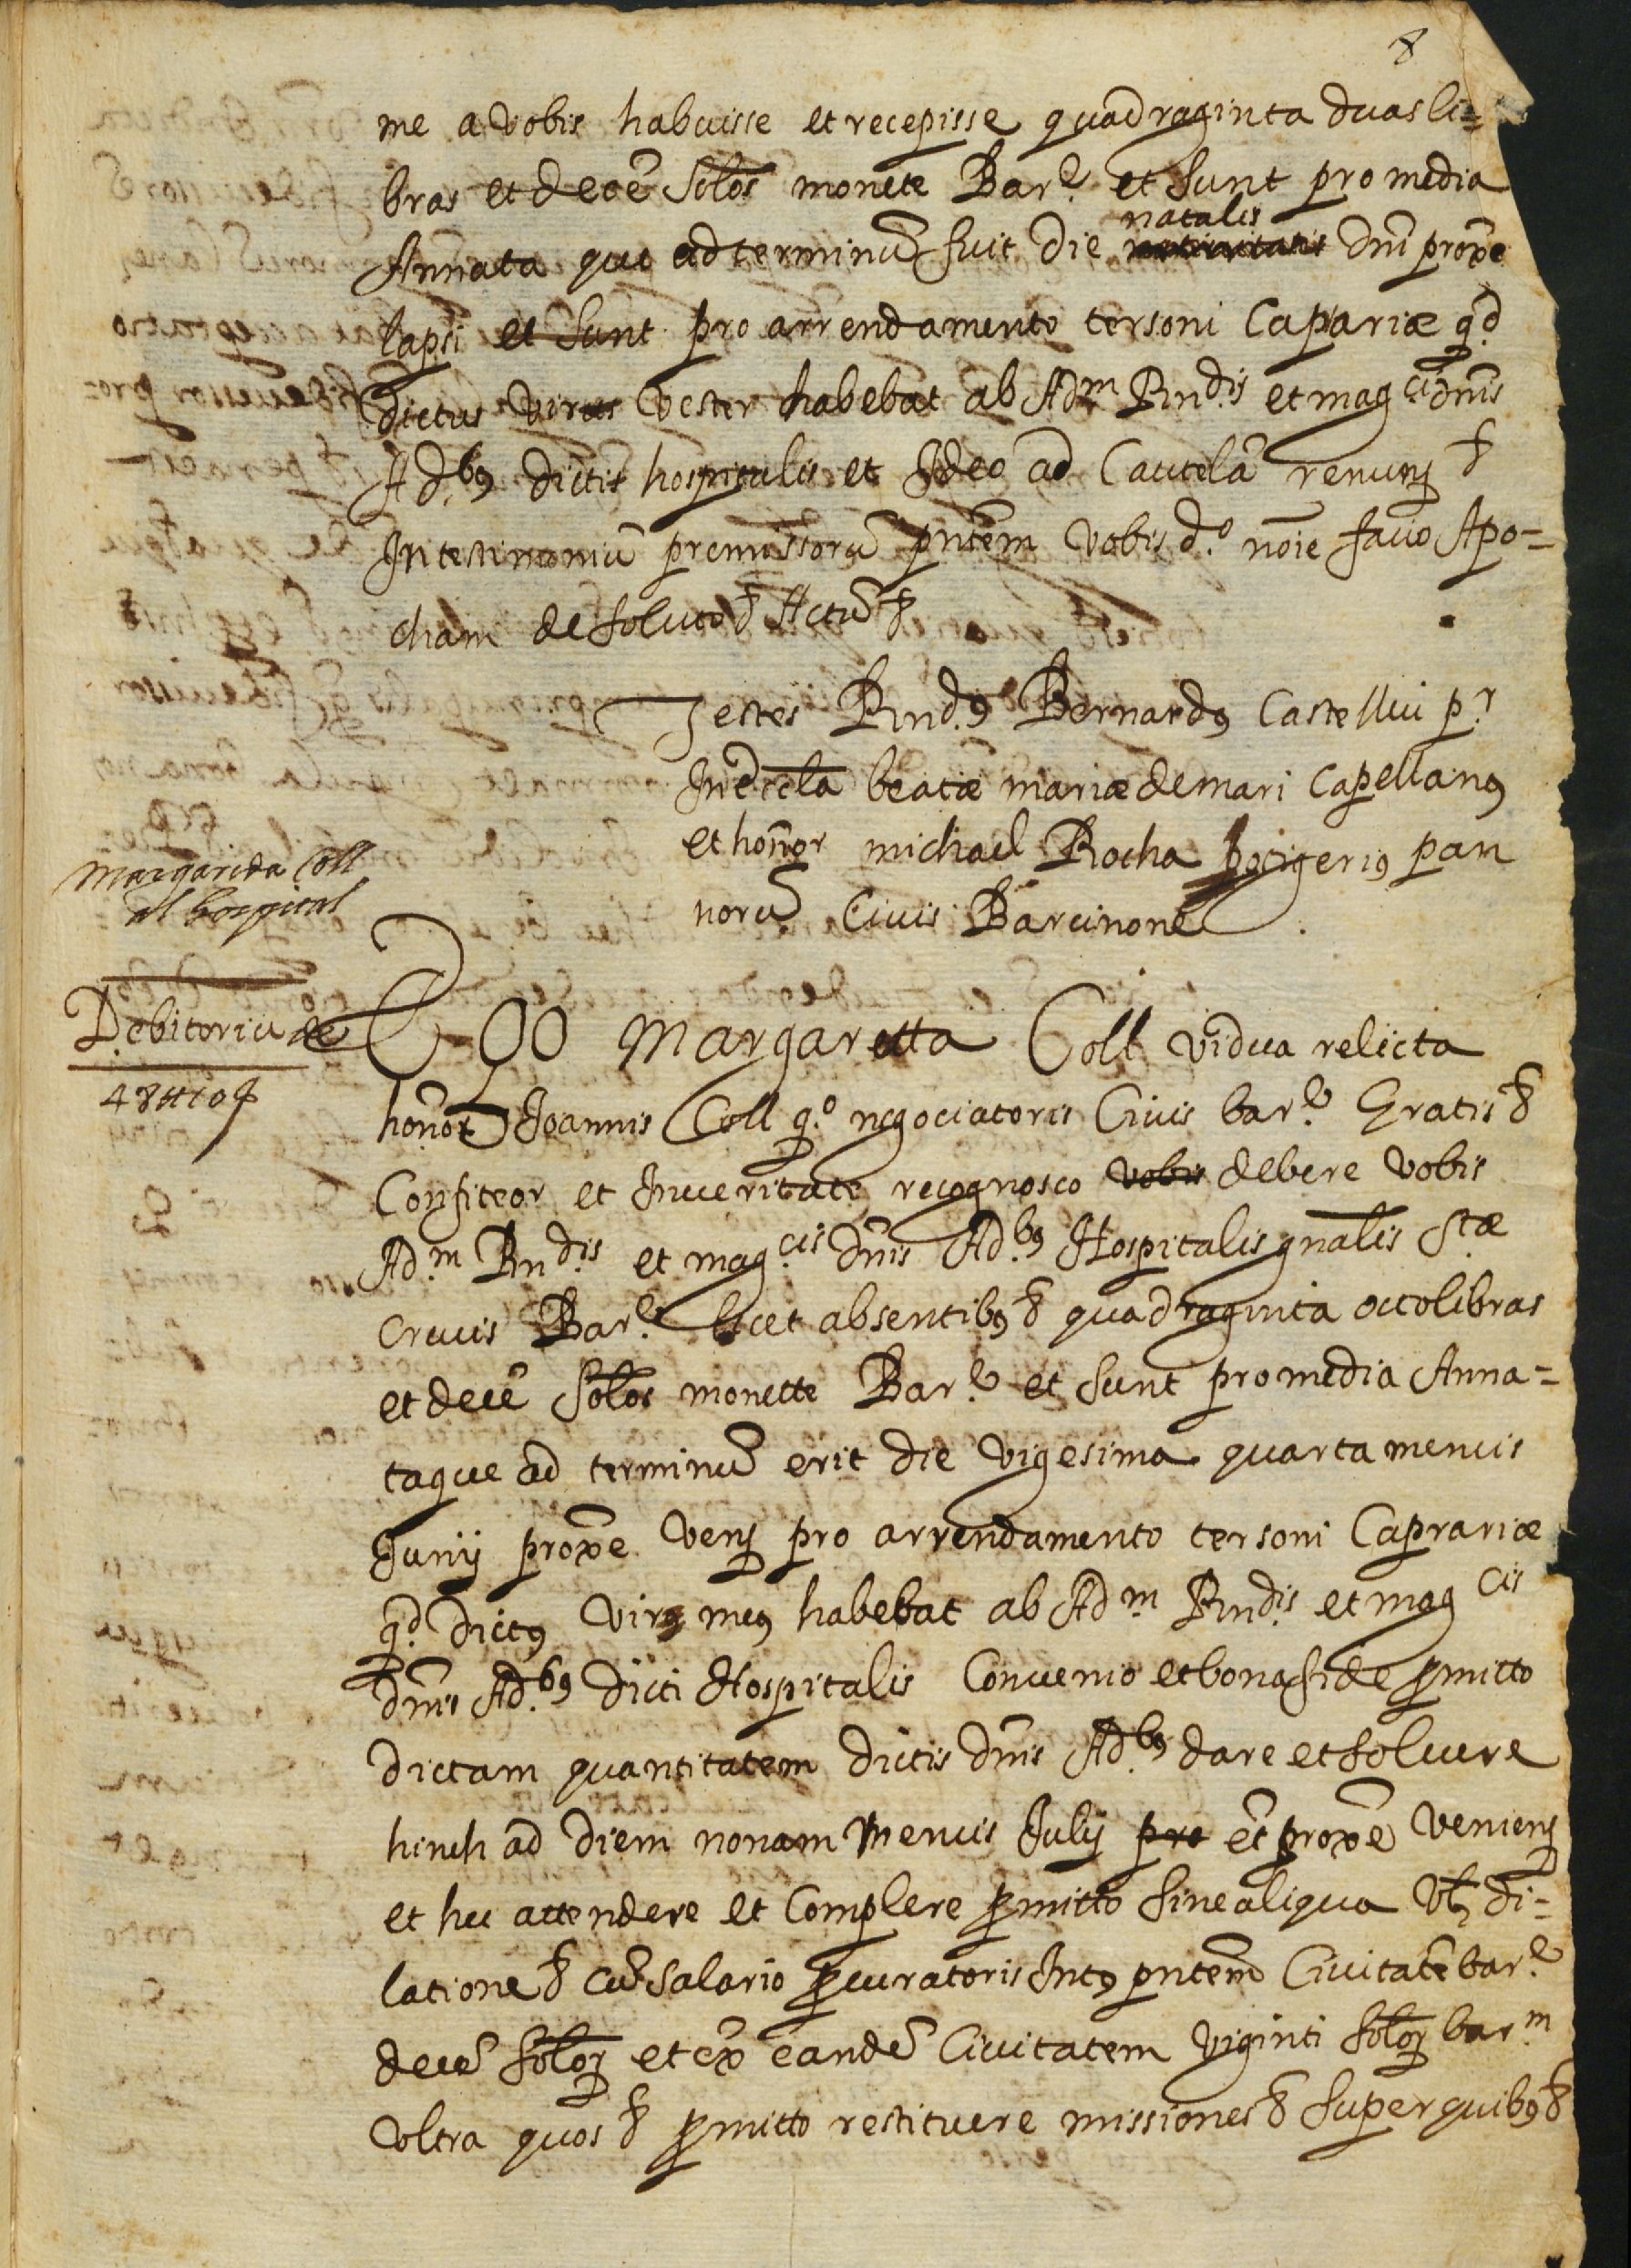 8
me a vobis habuisse et recepisse quadraginta duas li=
bras et decẽ solos monete Bar.e et sunt pro media
Annata que ad terminũ fuit die natalis nativitatis dñi proxe
lapsi et sunt pro arrendamento tersoni Capariæ q.d
dictus virus vester habebat ab Adm Rndis et mag.cis dnis
Ad.b9 dictis hospitalis et Ideo ad Cautelã renunς &
In testimoniũ premissorũ pntem vobis d.o noie facio Apo=
cham de soluto & Actũ &
Testes Rnd.9 Bernard9 Castellvi p.r
In eccla beatæ mariæ de mari Capellan9
et honor michael Rocha botigeri9 pan
norũ Civis Barcinone
Margarida Coll
al hospital
Debitoriũ de
48 ₶ 10 ș
Ego Margaretta Coll vidua relicta
honor Joannis Coll q.o negociatoris Civis bar.e Gratis &
Confiteor et In veritate recognosco vobis debere vobis
Ad.m Rndis et mag.cis dnis Ad.b9 Hospitalis gnalis Stæ
Crucis Bar.e licet absentib9 & quadraginta octo libras
et decẽ solos monette Bar.e et sunt pro media Anna=
ta que ad terminũ erit die vigesima quarta mensis
Junij proxe venς pro arrendamento tersoni Caprariæ
q.d dict9 vir9 me9 habebat ab Ad.m Rndis et mag cis
dnis Ad.b9 dicti Hospitalis Convenio et bona fide pmitto
dictam quantitatem dictis dnis Ad.b9 dare et solvere
hinch ad diem nonam mensis Julij pro et proxe venienς
et hec attendere et Complere pmitto sine aliqua vt di=
latione & cũ salario pcuratoris Int9 pntem Civitatẽ bar.e
decẽ soloꝝ et ex eandẽ Civitatem viginti soloꝝ bar.m
Ultra quos & pmitto restituere missiones & super quib9 &